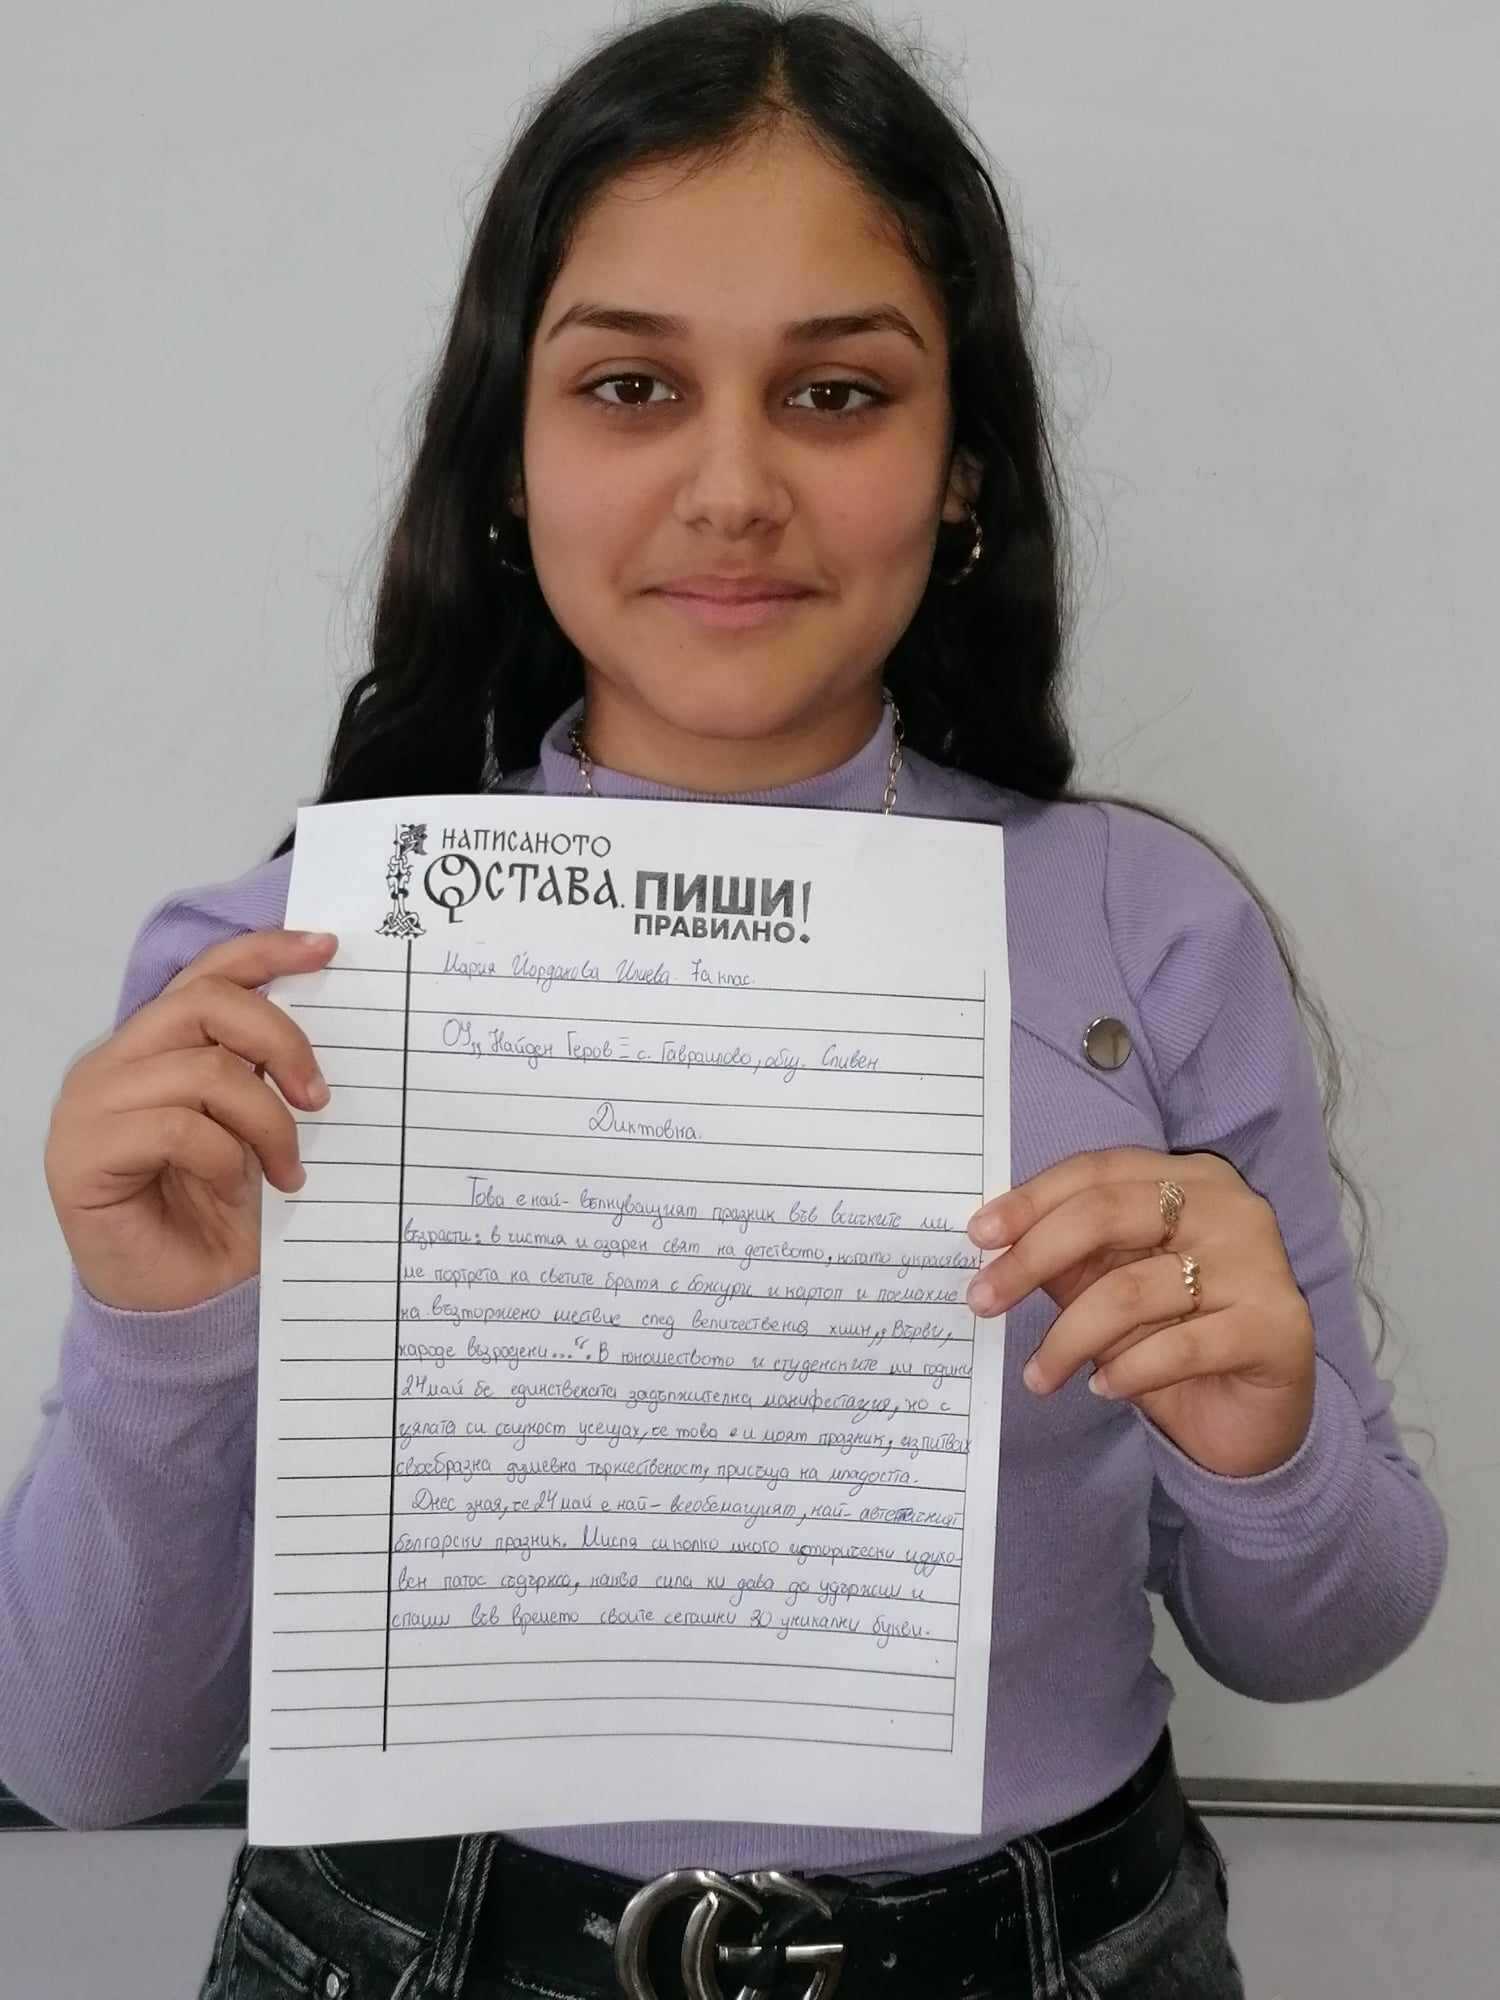 НАПИСАНОТО
ОСТАВА. ПИШИ!
ПРАВИЛНО.
Мария Йорданова Илиева 7а клас.
ОУ „Найден Геров“ – с. Гавраилово, общ. Сливен
Диктовка.
Това е най-вълнуващият празник във всичките ми
възрасти: в чистия и озарен свят на детството, когато украсявах-
ме портрета на светите братя с божури и картоп и поемахме
на възторжено шествие след величествения химн „Върви,
народе възродени...“. В юношеството и студенските ми години
24 май бе единствената задължителна манифестация, но с
цялата си същност усещах, че това е и моят празник, изпитвах
своеобразна душевна тържественост, присъща на младостта.
Днес зная, че 24 май е най-всеобемащият, най-автентичният
български празник. Мисля си колко много исторически и духо-
вен патос съдържа, каква сила ни дава да удържим и
спасим във времето своите сегашни 30 уникални букви.